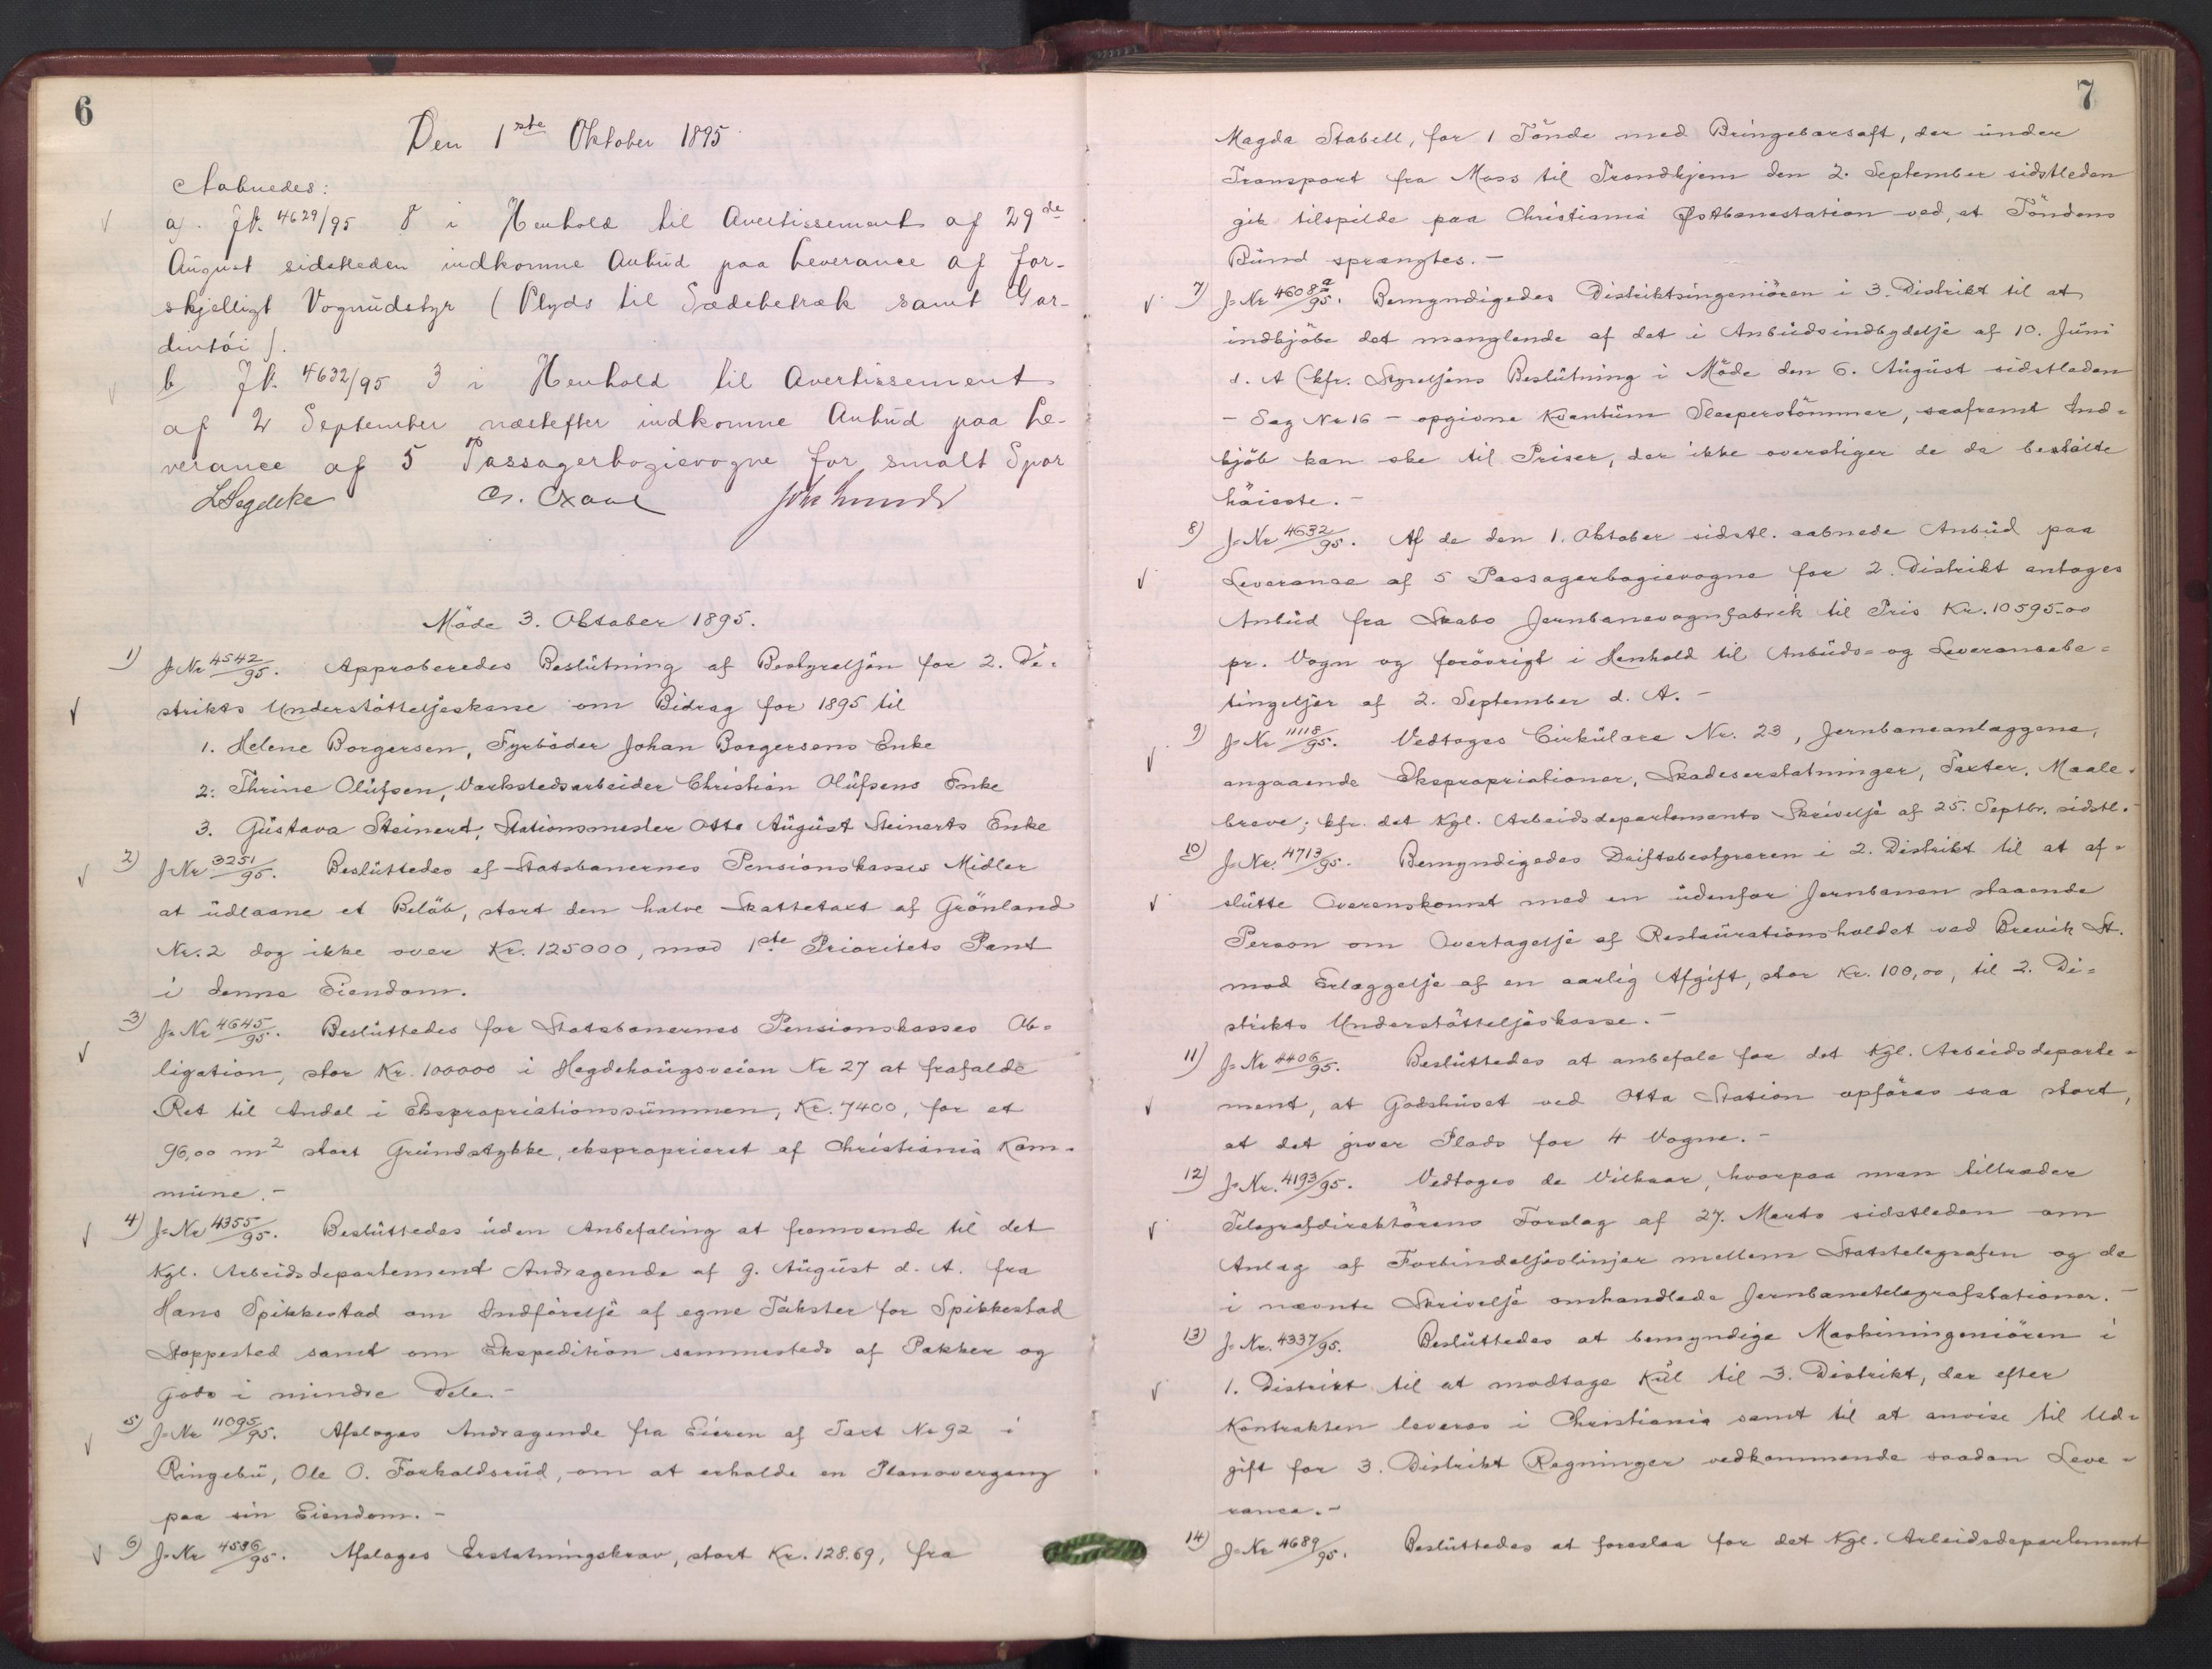 6
Den 1ste Oktober 1895
Aabnedes:
a). JN. 4629/95 8 i Henhold til Avertissement af 29de
August sidstleden indkomne Anbud paa Leverance af for-
skjelligt Vognudstyr (Plyds til Sædebetræk samt Gar-
dintöi).
b JN. 4632/95 3 i Henhold til Avertissement
af 2 September næstefter indkomne Anbud paa Le-
verance af 5 Passagerbogievogne for smalt Spor
Möde 3. Oktober 1895.
1) J-Nr 4542/95. Approberedes Beslutning af Bestyrelsen for 2. Di-
strikts Understöttelseskasse om Bidrag for 1895 til
1. Helene Borgersen, Fyrböder Johan Borgersens Enke
2. Thrine Olufsen, Værkstedsarbeider Christian Olufsens Enke
3. Gustava Steinert, Stationsmester Otto August Steinerts Enke
2) J-Nr 3251/95. Besluttedes af Statsbanernes Pensionskasses Midler
at udlaane et Belöb, stort den halve Skattetaxt af Grönland
Nr. 2 dog ikke over Kr. 125000, mod 1ste Prioritets Pant
i denne Eiendom.
3) J-Nr 4645/95. Besluttedes for Statsbanernes Pensionskasses Ob-
ligation, stor Kr. 100000 i Hegdehaugsveien Nr 27 at frafalde
Ret til Andel i Ekspropriationssummen, Kr. 7400, for et
96,00 m2 stort Grundstykke, eksproprieret af Christiania Kom-
mune.-
4) J-Nr 4355/95. Besluttedes uden Anbefaling at fremsende til det
Kgl. Arbeidsdepartement Andragende af 9. August d. A. fra
Hans Spikkestad om Indförelse af egne Takster for Spikkestad
Stoppested samt om Ekspedition sammesteds af Pakker og
Gods i mindre Dele.-
5) J-Nr 11095/95. Afsloges Andragende fra Eieren af Taxt Nr 92 i
Ringebu, Ole O. Forkaldsrud, om at erholde en Planovergang
paa sin Eiendom.-
6) J-Nr 4586/95. Afsloges Erstatningskrav, stort Kr. 128.69, fra
7
Magda Stabell, for 1 Tönde med Bringebærsaft, der under
Transport fra Moss til Trondhjem den 2. September sidstleden
gik tilspilde paa Christiania Østbanestation ved, at Töndens
Bund sprængtes.-
7) J-Nr 4608a/95. Bemyndigedes Distriktsingeniören i 3. Distrikt til at
indkjöbe det manglende af det i Anbudsindbydelse af 10. Juni
d. A (kfr. Styrelsens Beslutning i Möde den 6. August sidstleden
- Sag Nr 16 - opgivne Kvantum Sleeperstömmer, saafremt Ind-
kjöb kan ske til Priser, der ikke overstiger de da bestilte
höieste.-
8) J-Nr 4632/95. Af de den 1. Oktober sidstl. aabnede Anbud paa
Leverance af 5 Passagerbogievogne for 2. Distrikt antoges
Anbud fra Skabo Jernbanevognfabrik til Pris Kr. 10595.00
pr. Vogn og forövrigt i Henhold til Anbuds- og Leveransebe-
tingelser af 2. September d. A.-
9) J-Nr 11118/95. Vedtoges Cirkulære Nr. 23, Jernbaneanlæggene,
angaaende Ekspropriationer, Skadeserstatninger, Taxter, Maale-
breve; kfr. det Kgl. Arbeidsdepartements Skrivelse af 25. Septbr. sidstl.-
10) J-Nr. 4713/95. Bemyndigedes Driftsbestyreren i 2. Distrikt til at af-
slutte Overenskomst med en udenfor Jernbanen staaende
Person om Overtagelse af Restaurationsholdet ved Brevik St.
mod Erlæggelse af en aarlig Afgift, stor Kr. 100,00, til 2. Di-
strikts Understöttelseskasse.-
11) J-Nr 4406/95. Besluttedes at anbefale for det Kgl. Arbeidsdeparte-
ment, at Godshuset ved Otta Station opföres saa stort,
at det giver Plads for 4 Vogne.-
12) J-Nr. 4193/95. Vedtoges de Vilkaar, hvorpaa man tiltræder
Telegrafdirektörens Forslag af 27. Marts sidstleden om
Anlæg af Forbindelseslinjer mellem Statstelegrafen og de
i nævnte Skrivelse omhandlede Jernbanetelegrafstationer.-
13) J-Nr. 4337/95. Besluttedes at bemyndige Maskiningeniören i
1. Distrikt til at modtage Kul til 3. Distrikt, der efter
Kontrakten leveres i Christiania samt til at anvise til Ud-
gift for 3. Distrikt Regninger vedkommende saadan Leve-
rance.-
14) J-Nr 4689/95. Besluttedes at foreslaa for det Kgl. Arbeidsdepartement